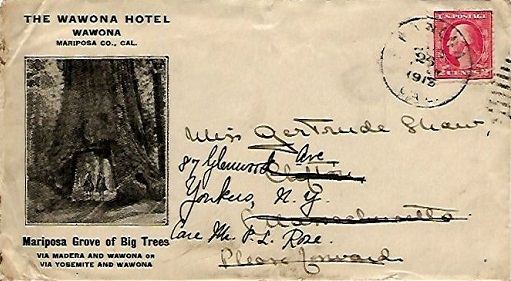 THE WAWONA HOTEL
WAWONA
MARIPOSA CO., CAL.
U.S. POSTAGE
2 CENTS 2
CAL.
Miss Gertrude Shaw,
87 Glenwood Ave.
Clifton
Yonkers, N.Y.
Massachusetts
Care Mr. F. L. Rose.
Please forward
Mariposa Grove of Big Trees
VIA MADERA AND WAWONA OR
VIA YOSEMITE AND WAWONA